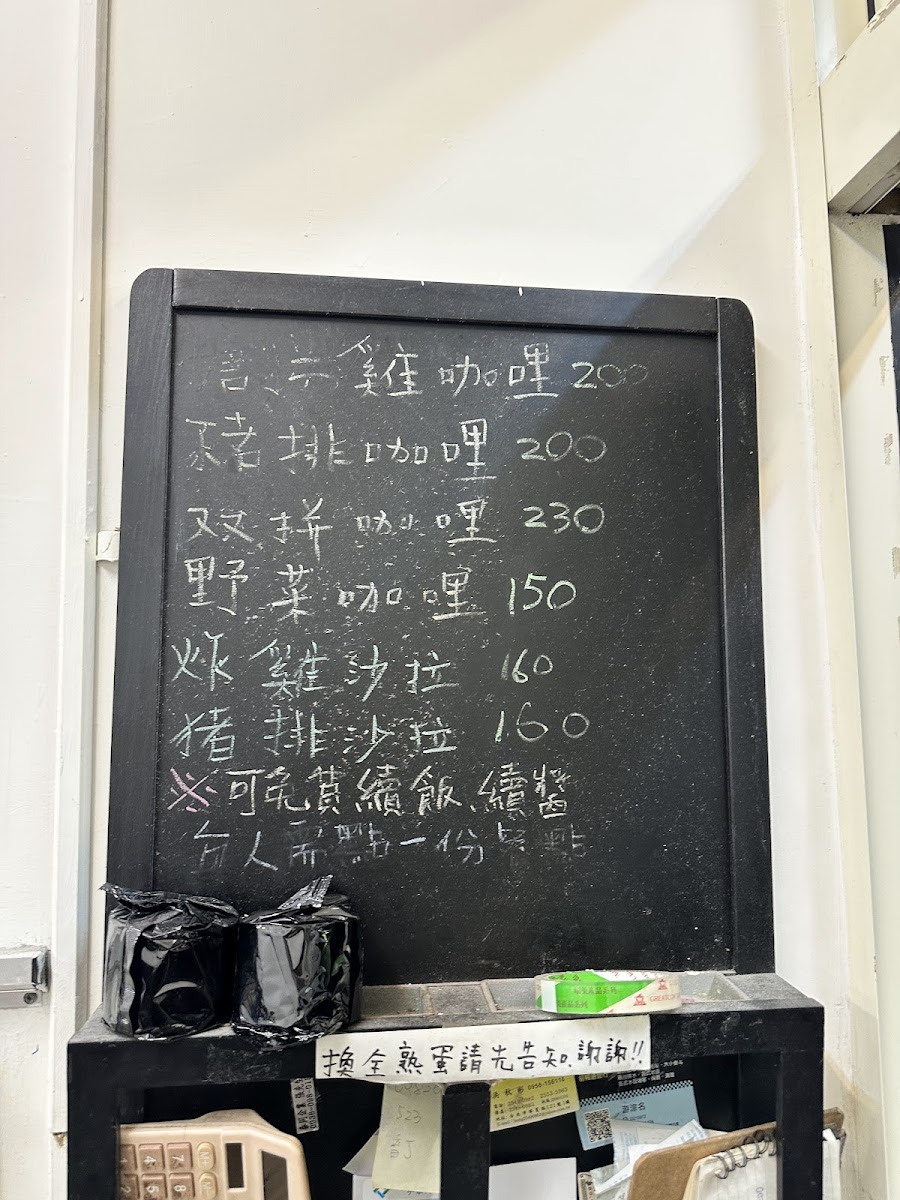 雞咖哩 200
豬排咖哩 200
双拼咖哩 230
野菜咖哩 150
炸雞沙拉 160
猪排沙拉 160
※可免費續飯、續醬
每人需點一份餐點
換全熟蛋請先告知.謝謝!!
523